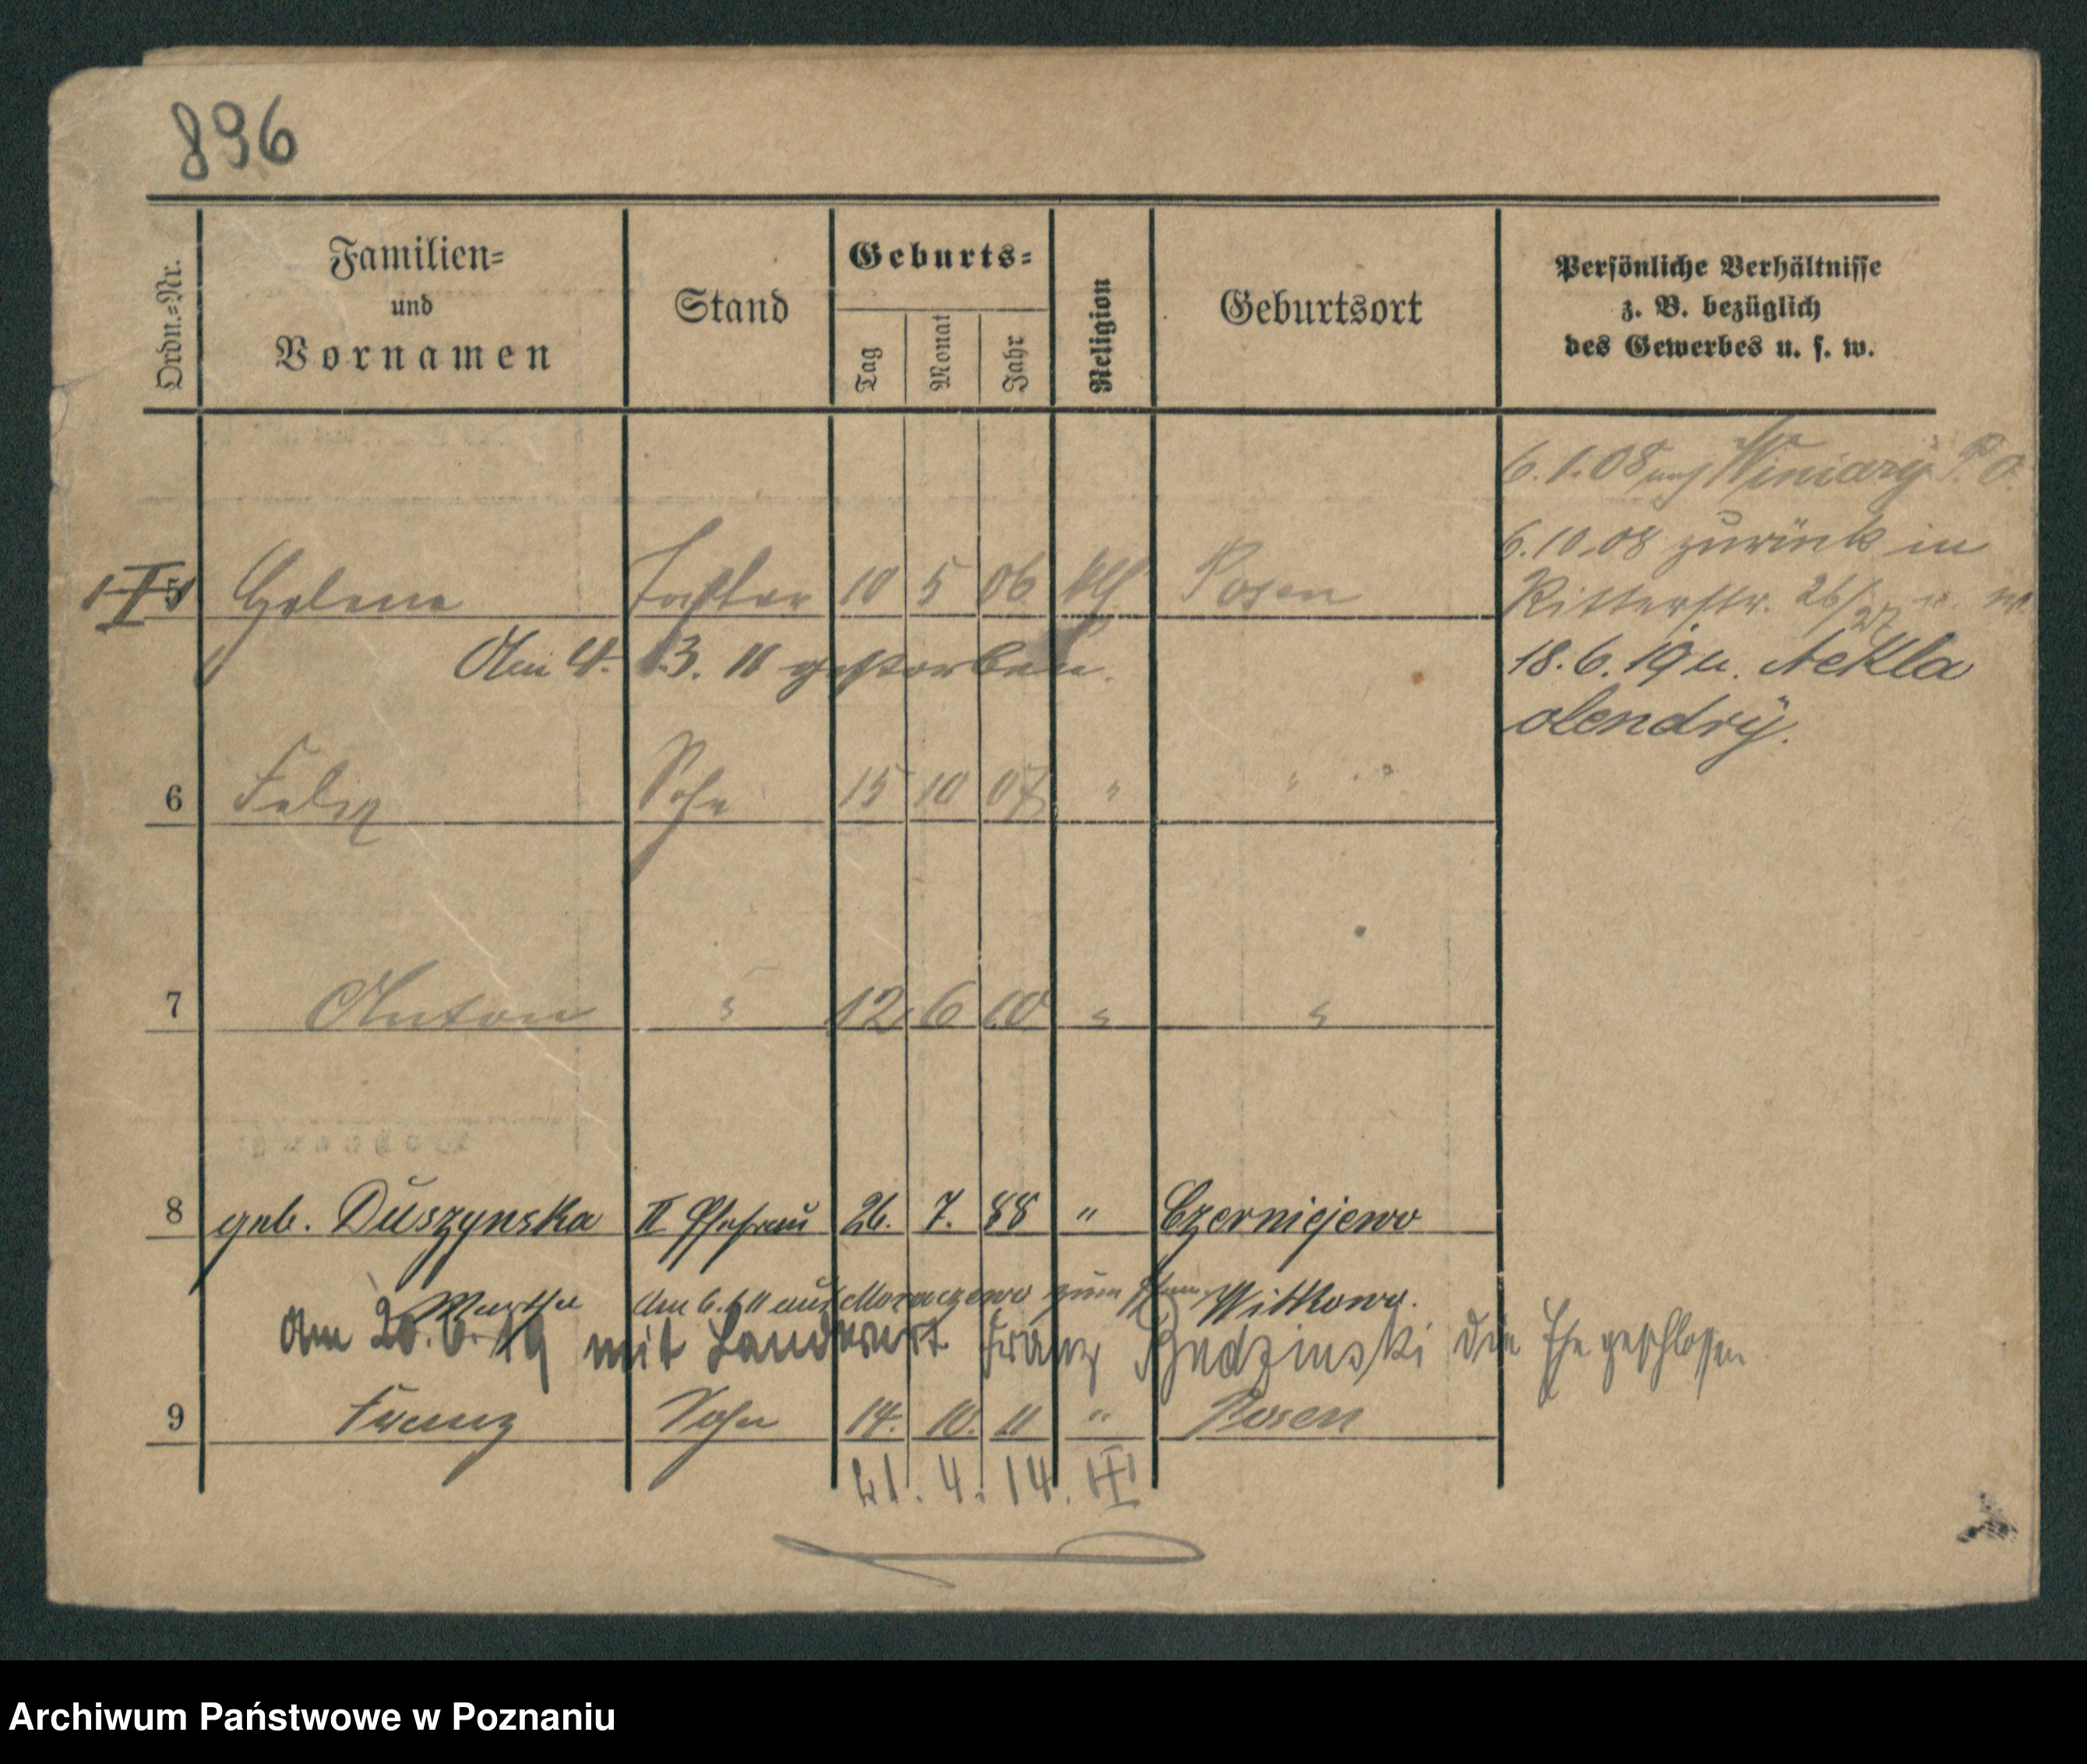 896
Ordn.-Nr.
Familien-
und
Vornamen
Stand
Geburts-
Tag
Monat
Jahr
Religion
Geburtsort
Persönliche Verhältnisse
z. B. bezüglich
des Gewerbes u. s. w.
6.1.08 Winiary P. O.
6.10.08 zurück in
Ritterstr. 26/27
18.6.19 n. Nekla
olendry.
5 Helena Tochter 10 5 06 kth Posen
Am 4. 3. 11 gestorben.
6 Felix Sohn 15 10 07 " " "
7 Anton " 12. 6 10 " "
8 geb. Duszynska II Ehefrau 26. 7. 88 " Czerniejewo
Martha Am 6. 6 11 aus zum Witkowo.
Am 20. 6. 19 mit Landwirt Franz die Ehe geschlossen
9 Franz Sohn 14. 10. 11 " Posen
21. 4. 14. III
Archiwum Państwowe w Poznaniu